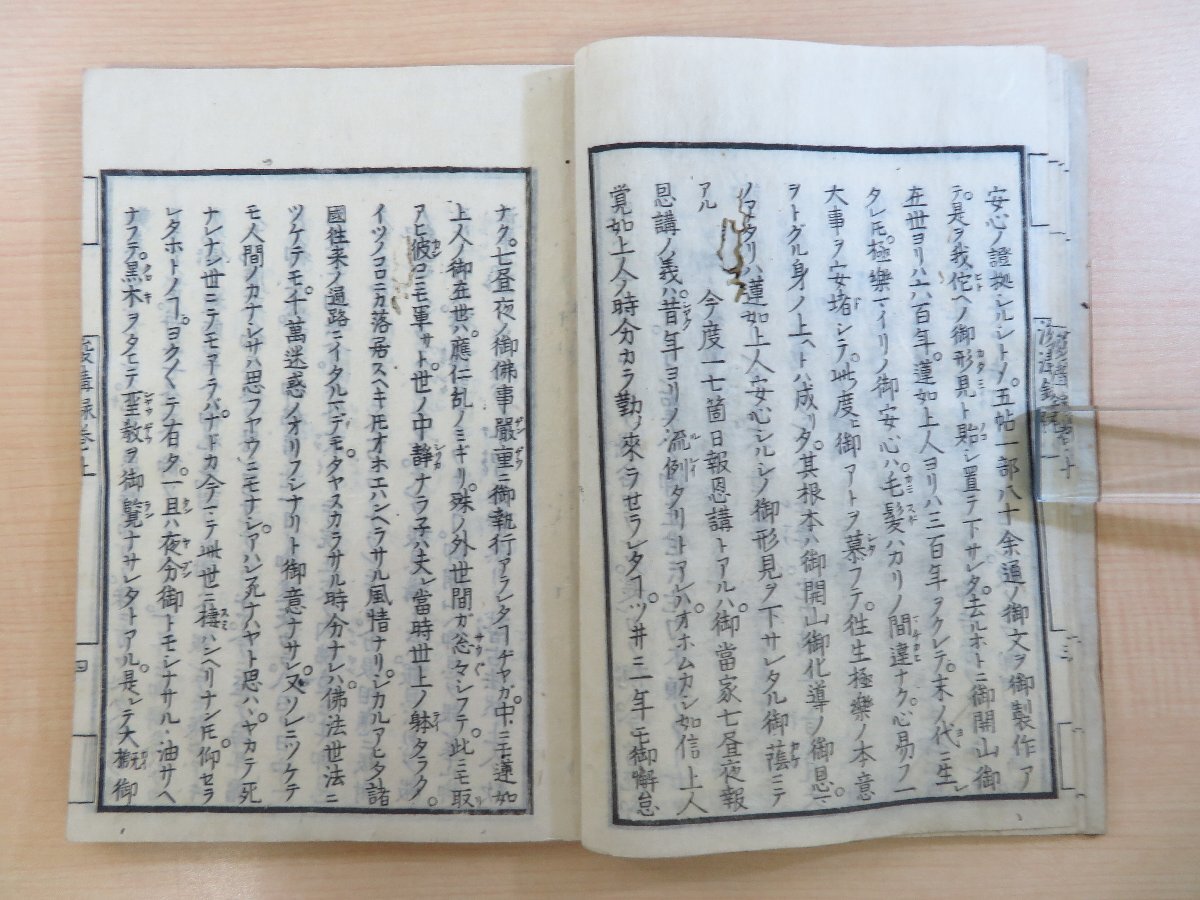 安心ノ證拠シルシトメ五帖一部八十余通ノ御文ヲ御製作ア
テ。是ヲ我侘ヘノ御形見ト貽シ置テ下サレタ。去ルホトニ御開山御
在世ヨリハ六百年。蓮如上人ヨリハ三百年ヲクレテ。末ノ代ニ生レ
タレ𪜈。極樂マイリノ御安心ハ毛髪ハカリノ間違ナク。心易フ一
大事ヲ安堵シテ。此度ヒ御アトヲ慕フテ。徃生極樂ノ本意
ヲトグル身ノ上ヘトハ成リタ。其根本ハ御開山御化導ノ御恩。
ノアタリハ蓮如上人安心シルシノ御形見ヲ下サレタル御蔭ニテ
アル
今度一七箇日報恩講トアルハ。御當家七昼夜報
恩講ノ義ハ昔年ヨリノ流例タリトアレハ。オホムカシ如信上人
覚如上人ノ時分カラ勤メ來ラセラレタヿ。ツ井ニ一年モ御懈怠
ナク。七昼夜ノ御佛事嚴重ニ御執行アラレタヿヂヤガ。中ニモ蓮如
上人御在世ハ。應仁乱ノミギリ。殊ノ外世間ガ忩々シフテ。此ニモ取
アヒ彼コニモ軍サト。世ノ中静ナラ子ハ。夫レ當時世上ノ躰タラク。
イツノコロニカ落居スヘキ𪜈オホエハンヘラサル風情ナリ。シカルアヒタ諸
國徃来ノ通路ニイタルマデモ。タヤスカラサル時分ナレハ。佛法世法ニ
ツケテモ。千萬迷惑ノオリフシナリト御意ナサレ。又ソレニツケテ
モ人間ノカナシサハ思フヤウニモナシ。アハレ死ナハヤト思ハヽ。ヤカテ死
ナレナン世ニテモアラバ。ナドカ今マテ此世ニ棲ハンヘリナン𪜈仰セラ
レタホトノヿ。ヨク〱テ右タ。一旦ハ夜分御トモシナサル、油サヘ
ナフテ。黒木ヲタモテ聖教ヲ御覧ナサレタトアル。是レテ大概御